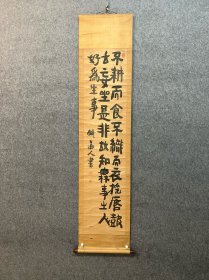 不耕而食不織而衣搖唇鼓
舌妄生是非故知無事之人
好為生事